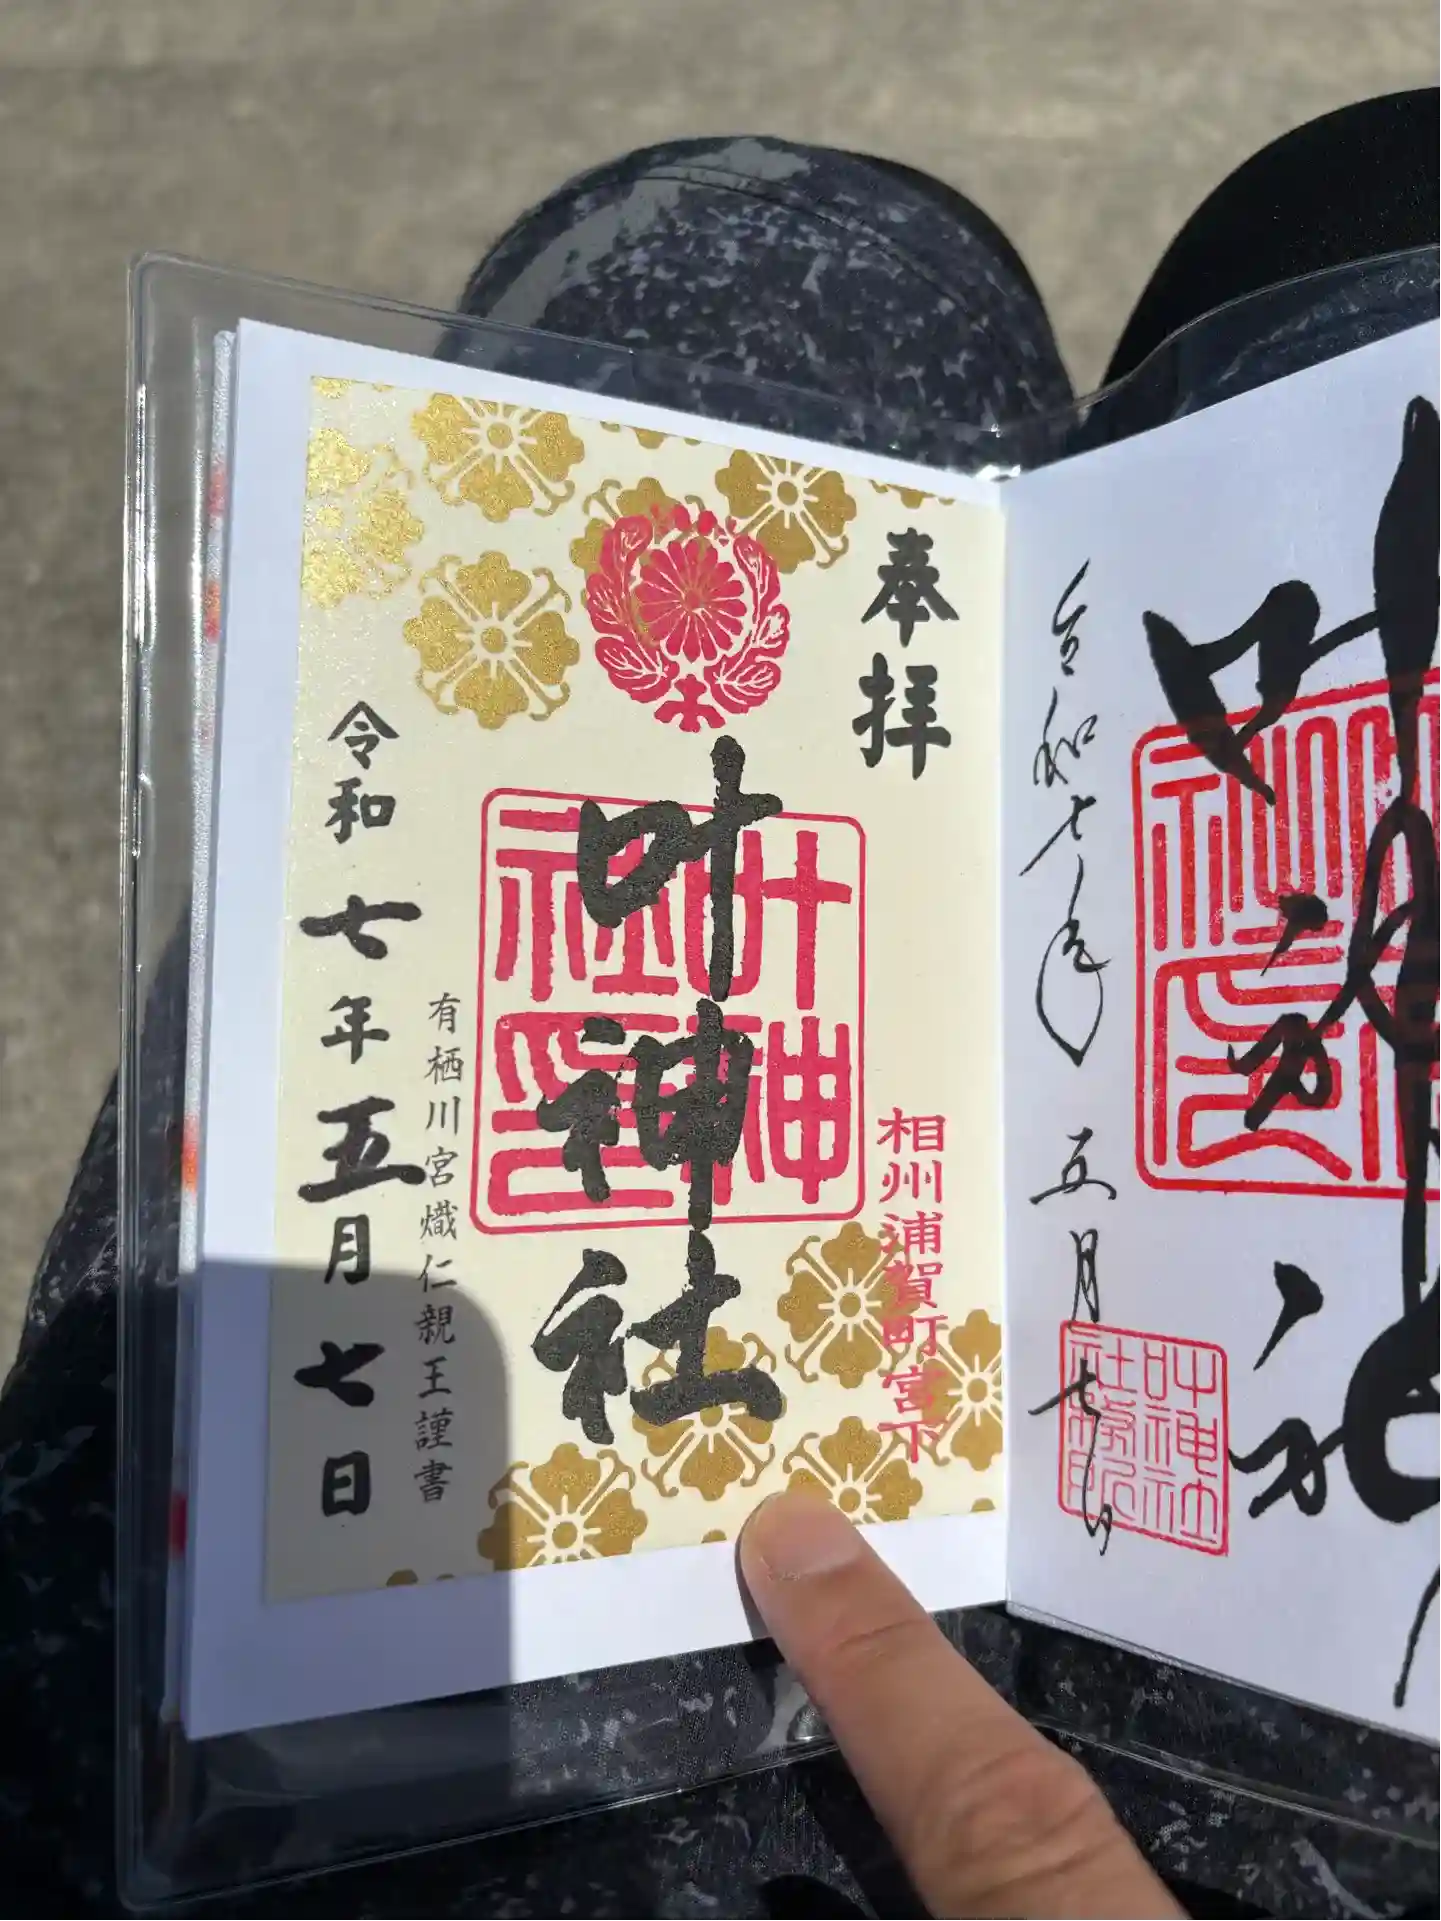 奉拝
相州浦賀町宮下
叶神社
叶神社印
有栖川宮熾仁親王謹書
令和七年五月七日
叶神社
叶神社務所印
令和七年五月七日